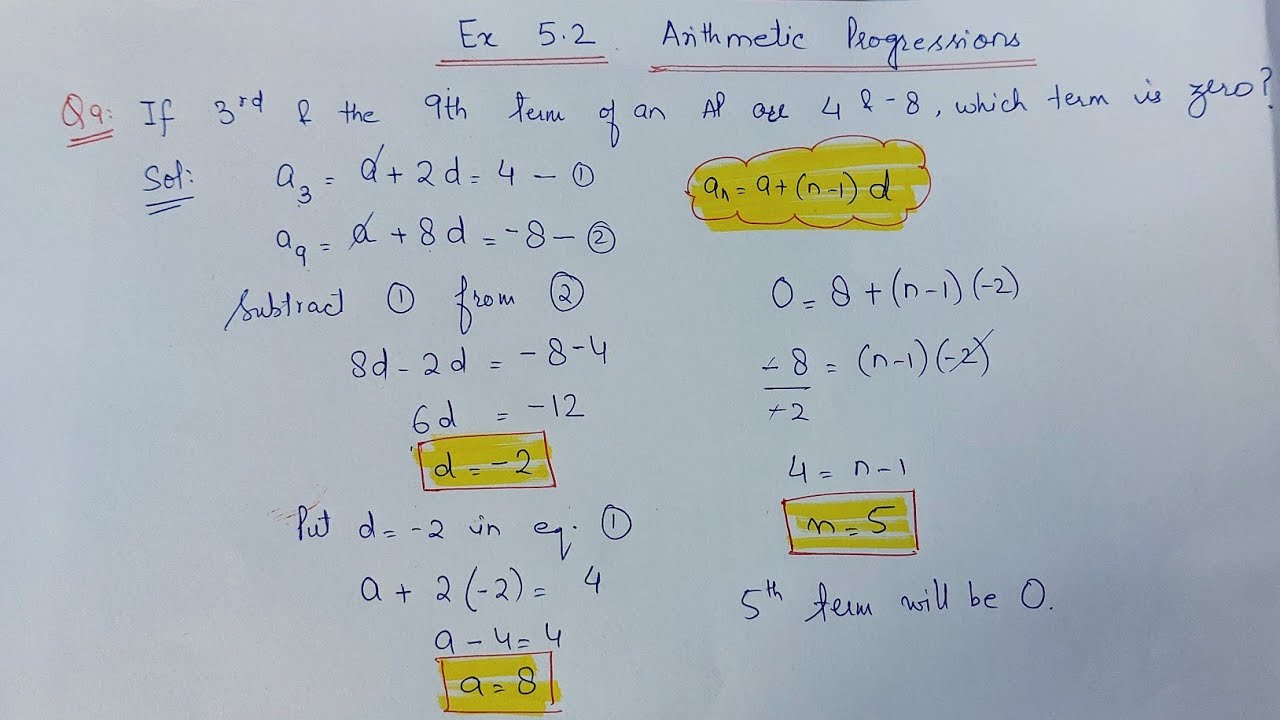 Ex 5.2. Arithmetic Progressions
Q9: If 3rd & the 9th term of an AP are 4 & -8, which term is zero?
Sol: a₃ = a + 2d = 4 - ①
a₉ = a + 8d = -8 - ②
Subtract ① from ②
8d - 2d = -8 - 4
6d = -12
d = -2
Put d = -2 in eq. ①
a + 2(-2) = 4
a - 4 = 4
a = 8
aₙ = a + (n-1) d
0 = 8 + (n-1)(-2)
-8/-2 = (n-1)(-2)
4 = n-1
n = 5
5th term will be 0.